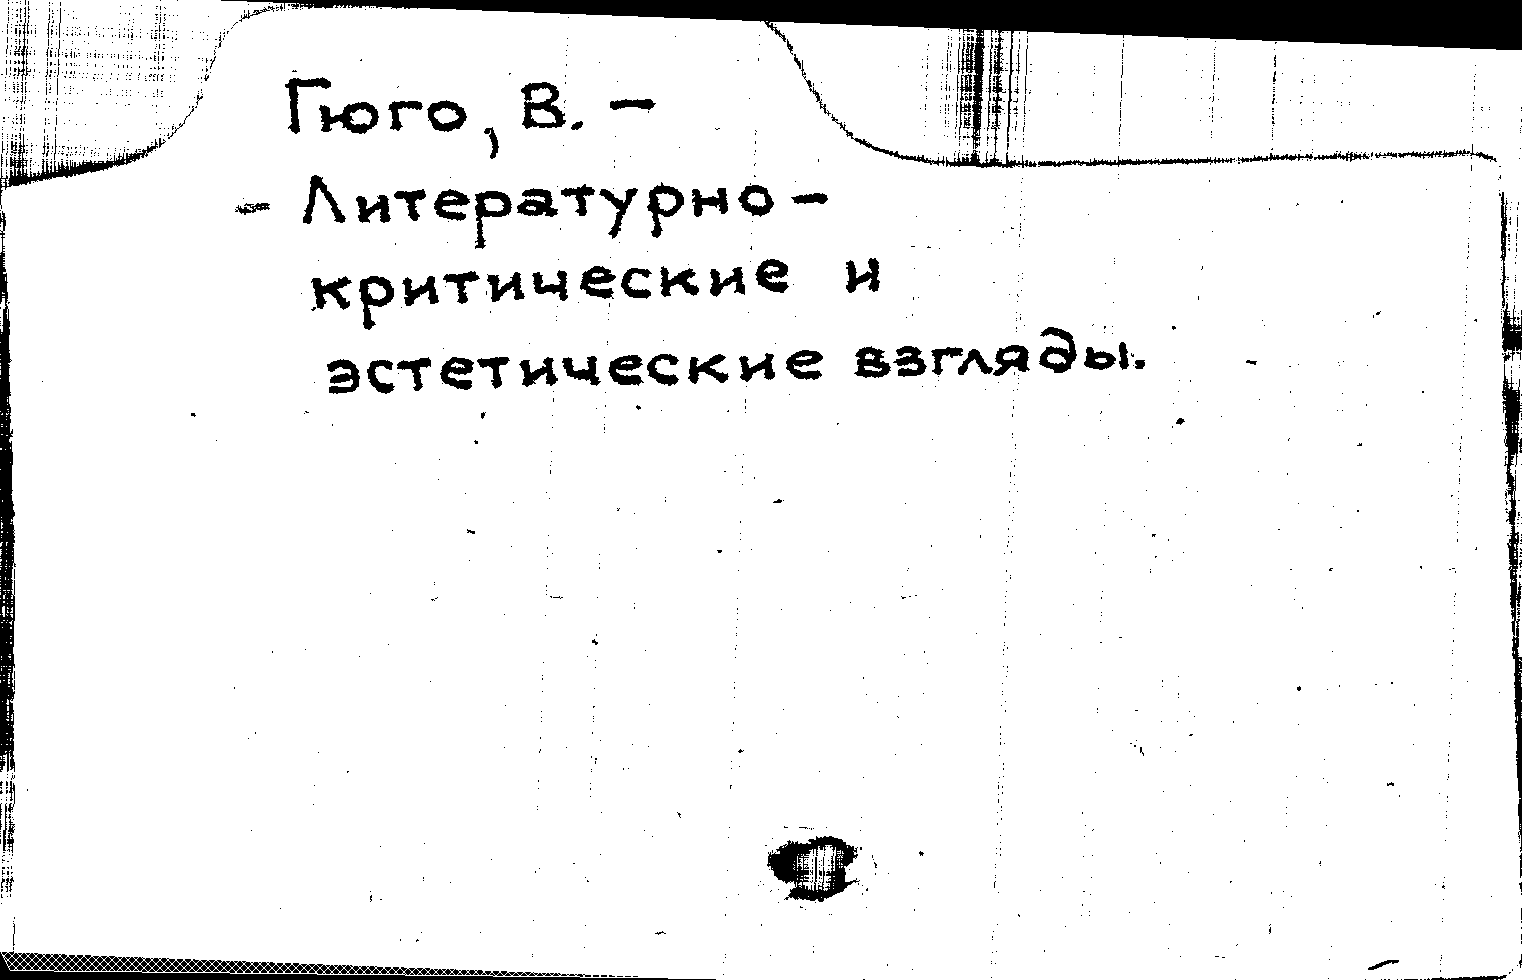 Гюго, В. –
- Литературно-
критические и
эстетические взгляды.